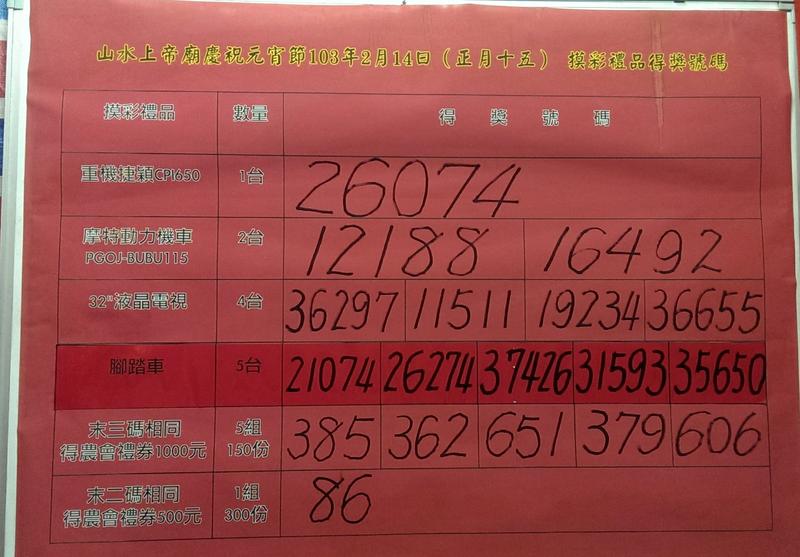 山水上帝廟慶祝元宵節103年2月14日（正月十五） 摸彩禮品得獎號碼
摸彩禮品 數量 得獎號碼
重機捷穎CPI650 1台 26074
摩特動力機車
PGOJ-BUBU115 2台 12188 16492
32"液晶電視 4台 36297 11511 19234 36655
腳踏車 5台 21074 26274 37426 31593 35650
末三碼相同
得農會禮券1000元 5組
150份 385 362 651 379 606
末二碼相同
得農會禮券500元 1組
300份 86